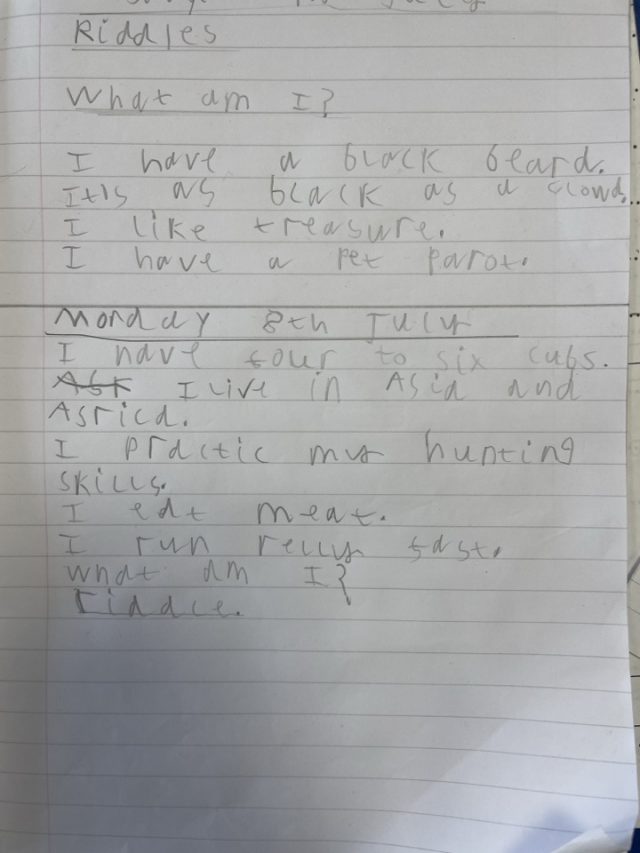 Riddles
What am I?
I have a black beard.
It is as black as a clowd.
I like treasure.
I have a pet parot.
Monday 8th July
I have four to six cubs.
I live in Asia and
Asrica.
I practic my hunting
skills.
I eat meat.
I run relly fast.
What am I?
riddle.